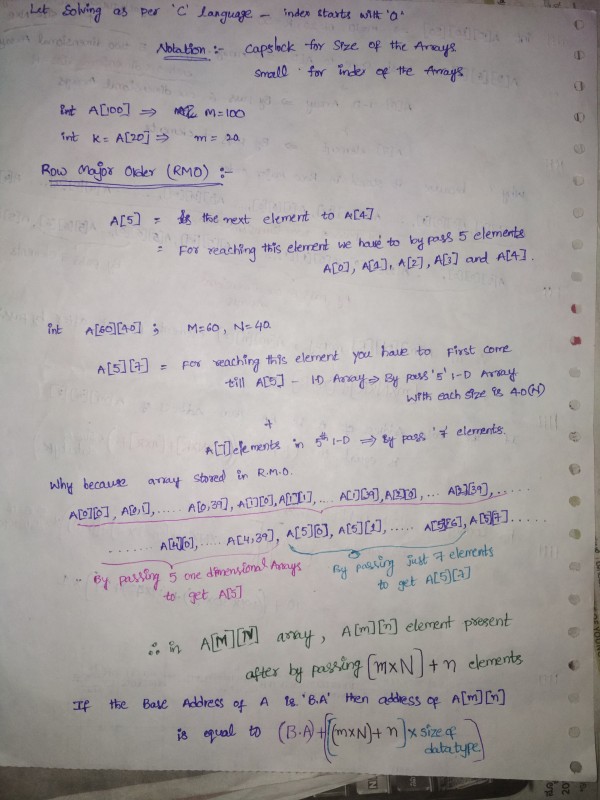 Let Solving as per 'C' language – index starts with '0'
Notation :- capslock for size of the Arrays
small for index of the Arrays
int A[100] ⇒ M=100
int k = A[20] ⇒ m = 20
Row Major Order (RMO) :-
A[5] = is the next element to A[4].
= For reaching this element we have to by pass 5 elements
A[0], A[1], A[2], A[3] and A[4].
int A[60][40] ; M=60, N=40
A[5][7] = For reaching this element you have to First come
till A[5] – 1-D Array ⇒ By pass '5' 1-D Array
with each size is 40(N)
+
A[7] elements in 5th 1-D ⇒ By pass '7' elements.
Why because array stored in R.M.O.
A[0][0], A[0,1], ..... A[0,39], A[1][0], A[1][1], .... A[1][39], A[2][0], ... A[2][39], .....
....... A[4][0], ..... A[4,39], A[5][0], A[5][1], ...... A[5][6], A[5][7] ......
By passing 5 one dimensional Arrays By passing just 7 elements
to get A[5] to get A[5][7]
∴ in A[M][N] array, A[m][n] element present
after by passing (m×N) + n elements
If the Base Address of A is 'B.A' then address of A[m][n]
is equal to (B.A) + [(m×N) + n] × size of
datatype